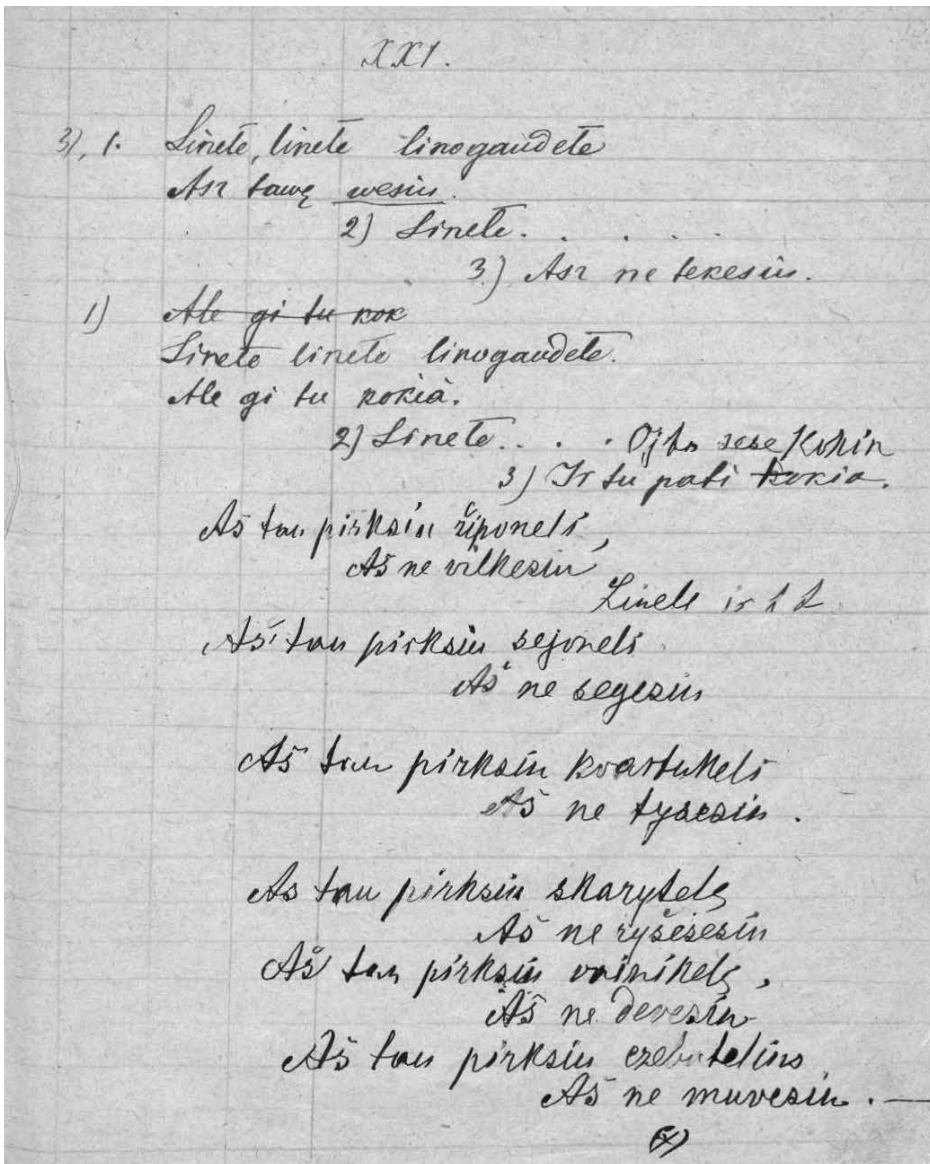 XXI.
3), 1. Linetē, linetē linogaudetē
Asz tawę wesiu.
2) Linetē. . . .
3.) Asz ne tekesiu.
1) Ale gi tu kok
Linetē linetē linogaudetē.
Ale gi tu kokià.
2) Linetē. . . .
3) Ir tu pati kokia.
Aš tau pirksiu žiponelį,
Aš ne vilkesiu
Linetē ir t t
Aš tau pirksiu sejonelį
Aš ne segesiu
Aš tau pirksiu kvartukelį
Aš ne tysesiu.
As tau pirksiu skarytelę
Aš ne ryšesesiu
Aš tau pirksiu vainikelę,
Aš ne devesiu
Aš tau pirksiu czebatelius
Aš ne muvesiu. —